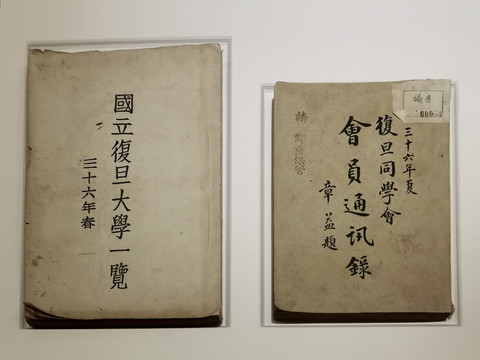 國立復旦大學一覽
三十六年春
編号
三十六年夏
復旦同學會
會員通訊錄
章益題
請